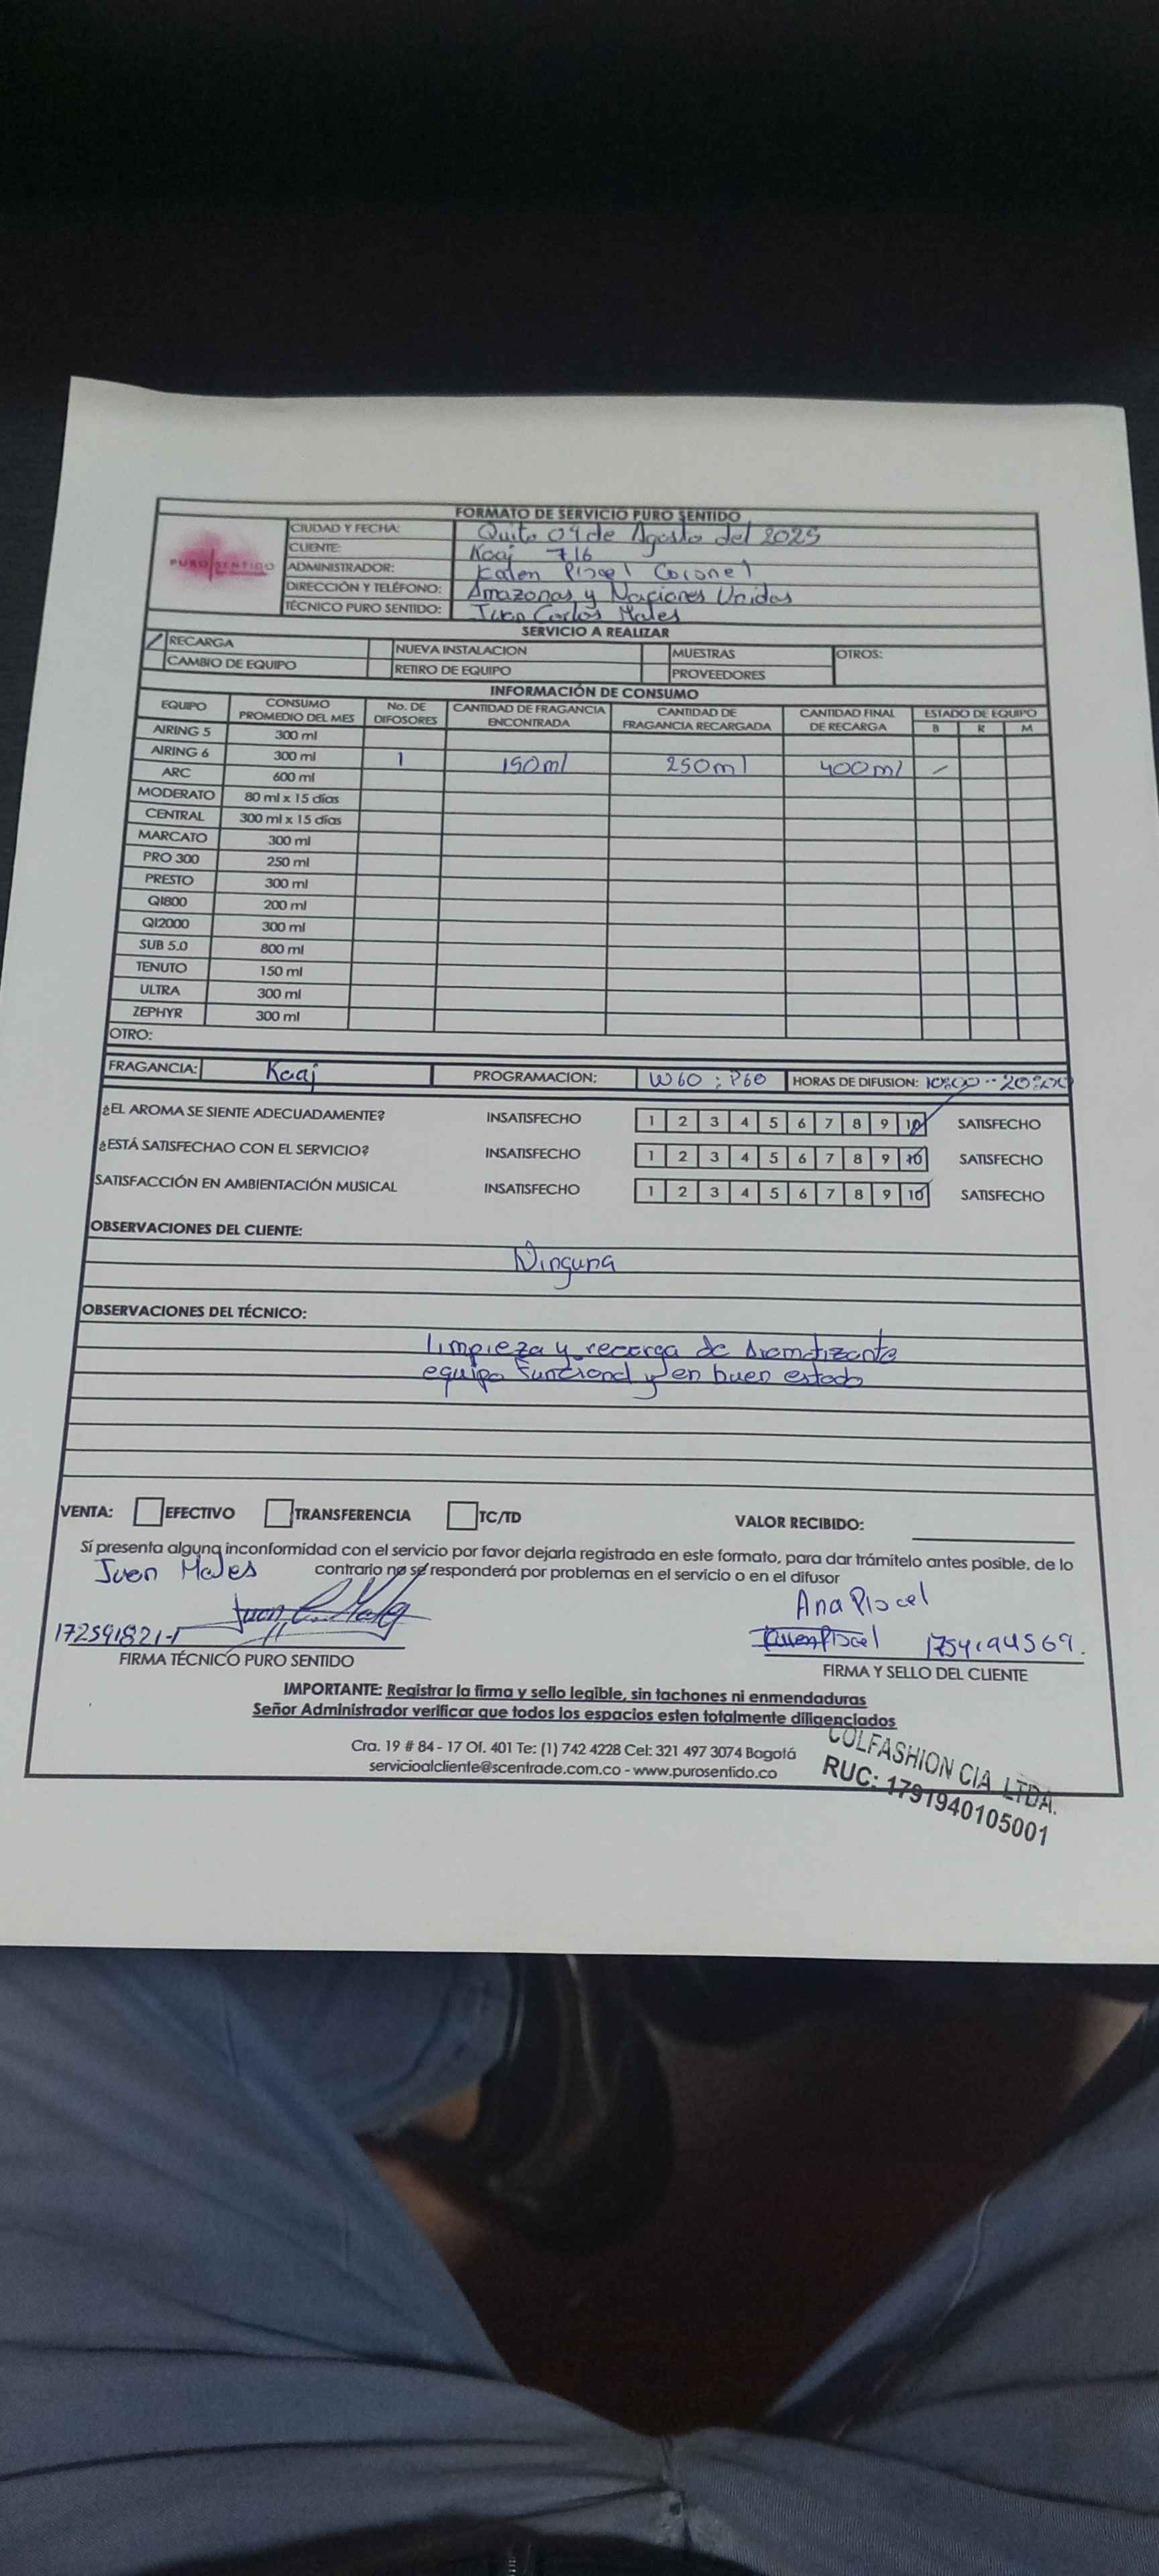 FORMATO DE SERVICIO PURO SENTIDO
PURO SENTIDO
CIUDAD Y FECHA: Quito 09 de Agosto del 2025
CLIENTE: Kaaj 716
ADMINISTRADOR: Piscel Coronel
DIRECCIÓN Y TELÉFONO: Amazonas y Naciones Unidas
TÉCNICO PURO SENTIDO: Juan Carlos Males
SERVICIO A REALIZAR
RECARGA NUEVA INSTALACION MUESTRAS OTROS:
CAMBIO DE EQUIPO RETIRO DE EQUIPO PROVEEDORES
INFORMACIÓN DE CONSUMO
EQUIPO CONSUMO PROMEDIO DEL MES No. DE DIFOSORES CANTIDAD DE FRAGANCIA ENCONTRADA CANTIDAD DE FRAGANCIA RECARGADA CANTIDAD FINAL DE RECARGA ESTADO DE EQUIPO B R M
AIRING 5 300 ml
AIRING 6 300 ml 1 150ml 250ml 400ml
ARC 600 ml
MODERATO 80 ml x 15 días
CENTRAL 300 ml x 15 días
MARCATO 300 ml
PRO 300 250 ml
PRESTO 300 ml
QI800 200 ml
QI2000 300 ml
SUB 5.0 800 ml
TENUTO 150 ml
ULTRA 300 ml
ZEPHYR 300 ml
OTRO:
FRAGANCIA: Kaaj PROGRAMACION: W60 : P60 HORAS DE DIFUSION: 10:00 - 20:00
¿EL AROMA SE SIENTE ADECUADAMENTE? INSATISFECHO 1 2 3 4 5 6 7 8 9 10 SATISFECHO
¿ESTÁ SATISFECHAO CON EL SERVICIO? INSATISFECHO 1 2 3 4 5 6 7 8 9 10 SATISFECHO
SATISFACCIÓN EN AMBIENTACIÓN MUSICAL INSATISFECHO 1 2 3 4 5 6 7 8 9 10 SATISFECHO
OBSERVACIONES DEL CLIENTE:
Ninguna
OBSERVACIONES DEL TÉCNICO:
Limpieza y recarga de Aromatizante
equipo funcional y en buen estado
VENTA: EFECTIVO TRANSFERENCIA TC/TD VALOR RECIBIDO:
Sí presenta alguna inconformidad con el servicio por favor dejarla registrada en este formato, para dar trámitelo antes posible, de lo
contrario no se responderá por problemas en el servicio o en el difusor
Juan Males
Ana Piscel
172591821-1
Piscel 1754194569.
FIRMA TÉCNICO PURO SENTIDO
FIRMA Y SELLO DEL CLIENTE
IMPORTANTE: Registrar la firma y sello legible, sin tachones ni enmendaduras
Señor Administrador verificar que todos los espacios esten totalmente diligenciados
Cra. 19 # 84 - 17 Of. 401 Te: (1) 742 4228 Cel: 321 497 3074 Bogotá
servicioalcliente@scentrade.com.co - www.purosentido.co
COLFASHION CIA. LTDA.
RUC: 1791940105001